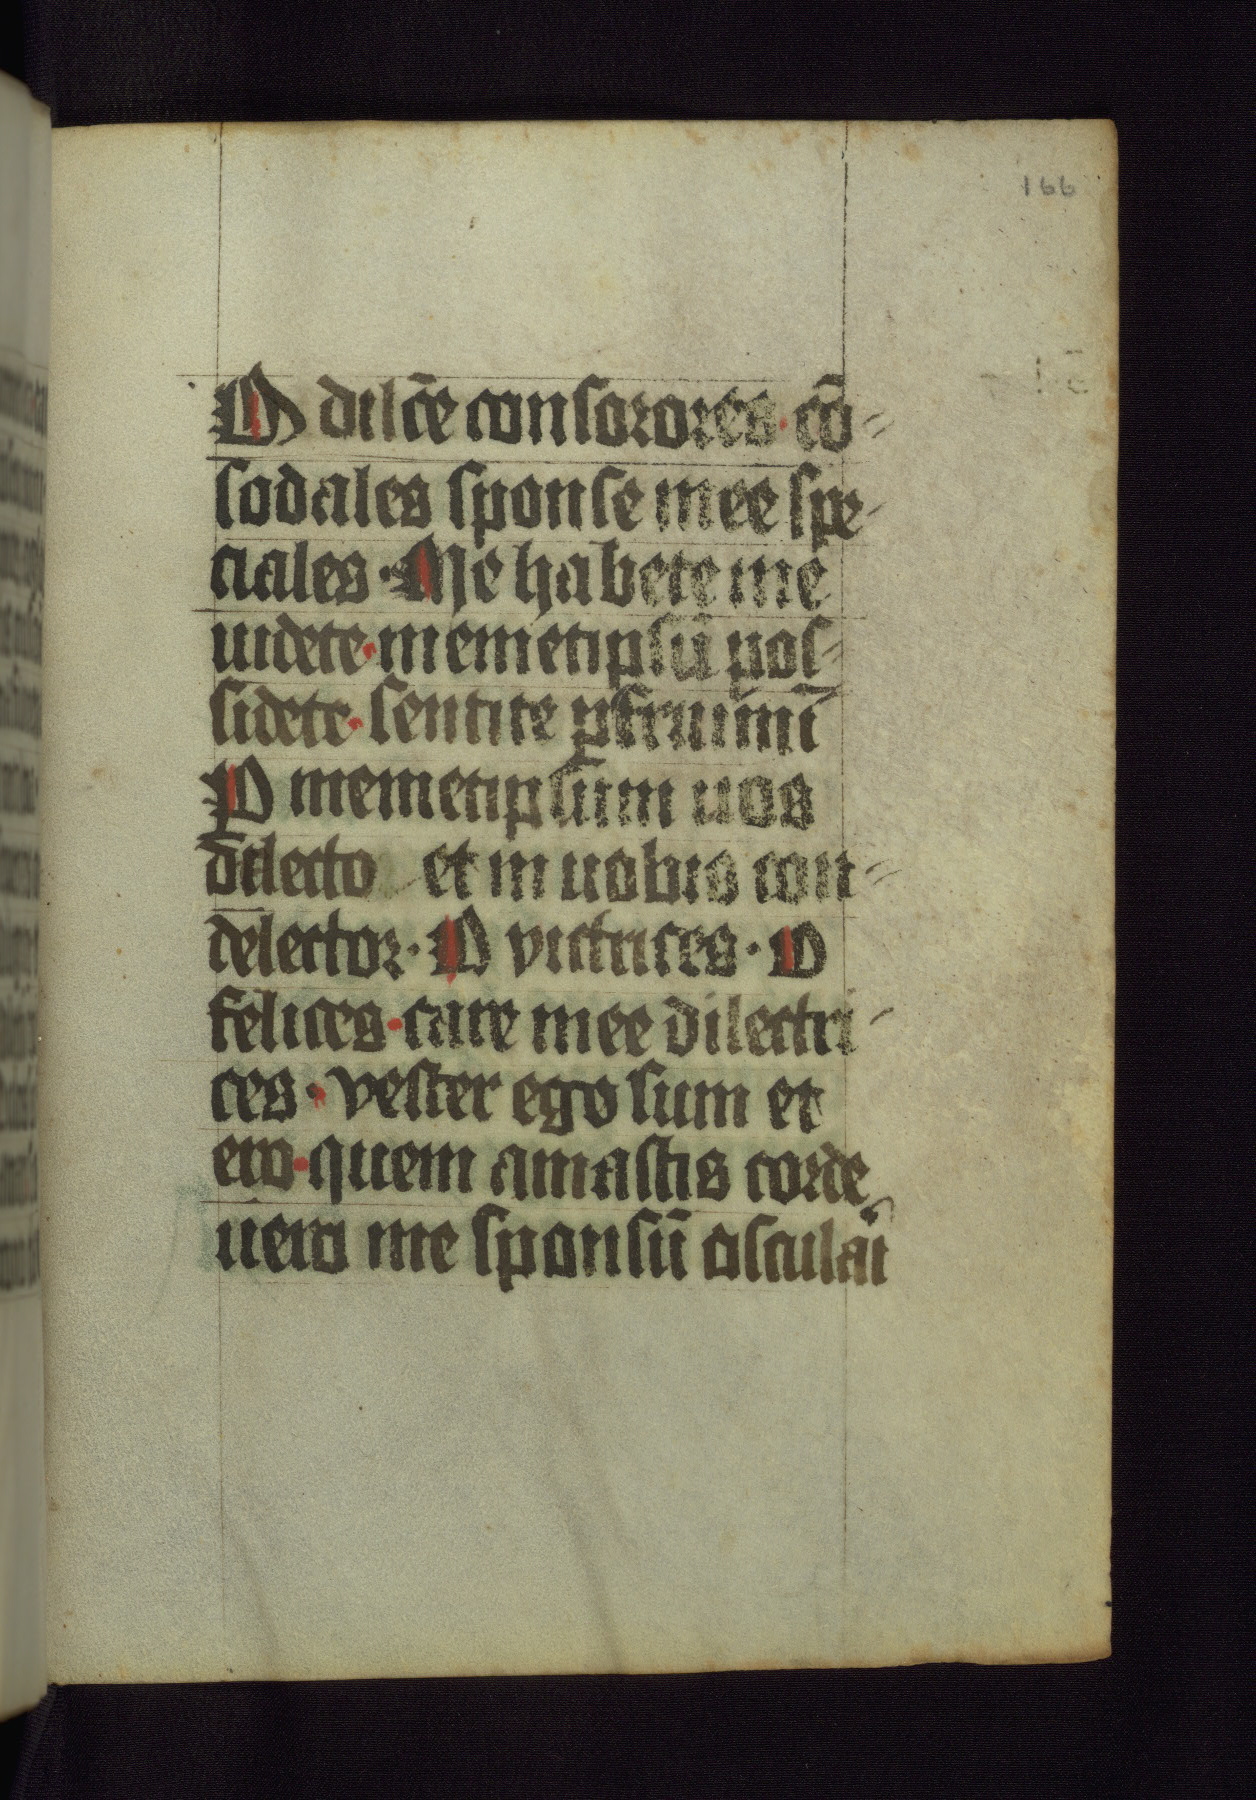 166
O dilc̄e consorores · cō=
sodales sponse mee spe-
ciales · Me habete me
uidete · memetipsū pos=
sidete · sentite ꝑfruimī
O memetipsum uos
dilecto et in uobis con=
delector · O victrices · O
felices · care mee dilectri-
ces · vester ego sum et
ero · quem amastis corde
uero me sponsū osculaī